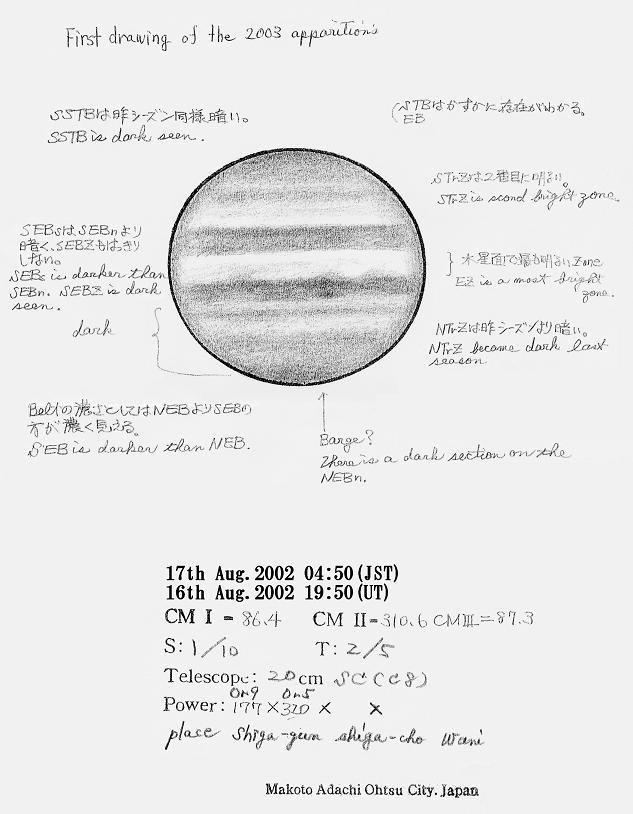 First drawing of the 2003 apparitions
SSTBは昨シーズン同様暗い。
SSTB is dark seen.
STBはかすかに存在がわかる。
EB
STrZは2番目に明るい。
STrZ is scond bright zone.
SEBsは、SEBnより
暗く、SEBZもはっきり
しない。
SEBs is darker than
SEBn. SEBZ is dark
seen.
木星面で最も明るいZone
EZ is a most bright
zone.
dark
NTrZは昨シーズンより暗い。
NTrZ became dark last
season
Beltの濃さとしてはNEBよりSEBの
方が濃く見える。
SEB is darker than NEB.
Barge?
There is a dark section on the
NEBn.
17th Aug. 2002 04:50(JST)
16th Aug. 2002 19:50(UT)
CM I = 86.4 CM II=310.6 CM III=87.3
S: 1/10 T: 2/5
Telescope: 20cm SC (C8)
Or9 Or5
Power: 177 ×320 × ×
place Shiga-gun shiga-cho Wani
Makoto Adachi Ohtsu City. Japan